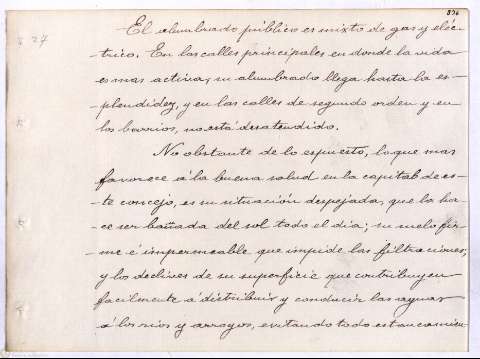 836
27
El alumbrado público es mixto de gas y eléc-
trico. En las calles principales en donde la vida
es mas activa, su alumbrado llega hasta la es-
plendidez, y en las calles de segundo orden y en
los barrios, no está desatendido.
No obstante de lo espuesto, lo que mas
favorece á la buena salud en la capital de es-
te concejo, es su situación despejada, que la ha-
ce ser bañada del sol todo el dia; su suelo fir-
me é impermeable que impide las filtraciones,
y los declives de su superficie que contribuyen
facilmente á distribuir y conducir las aguas
á los rios y arroyos, evitando todo estancamien-